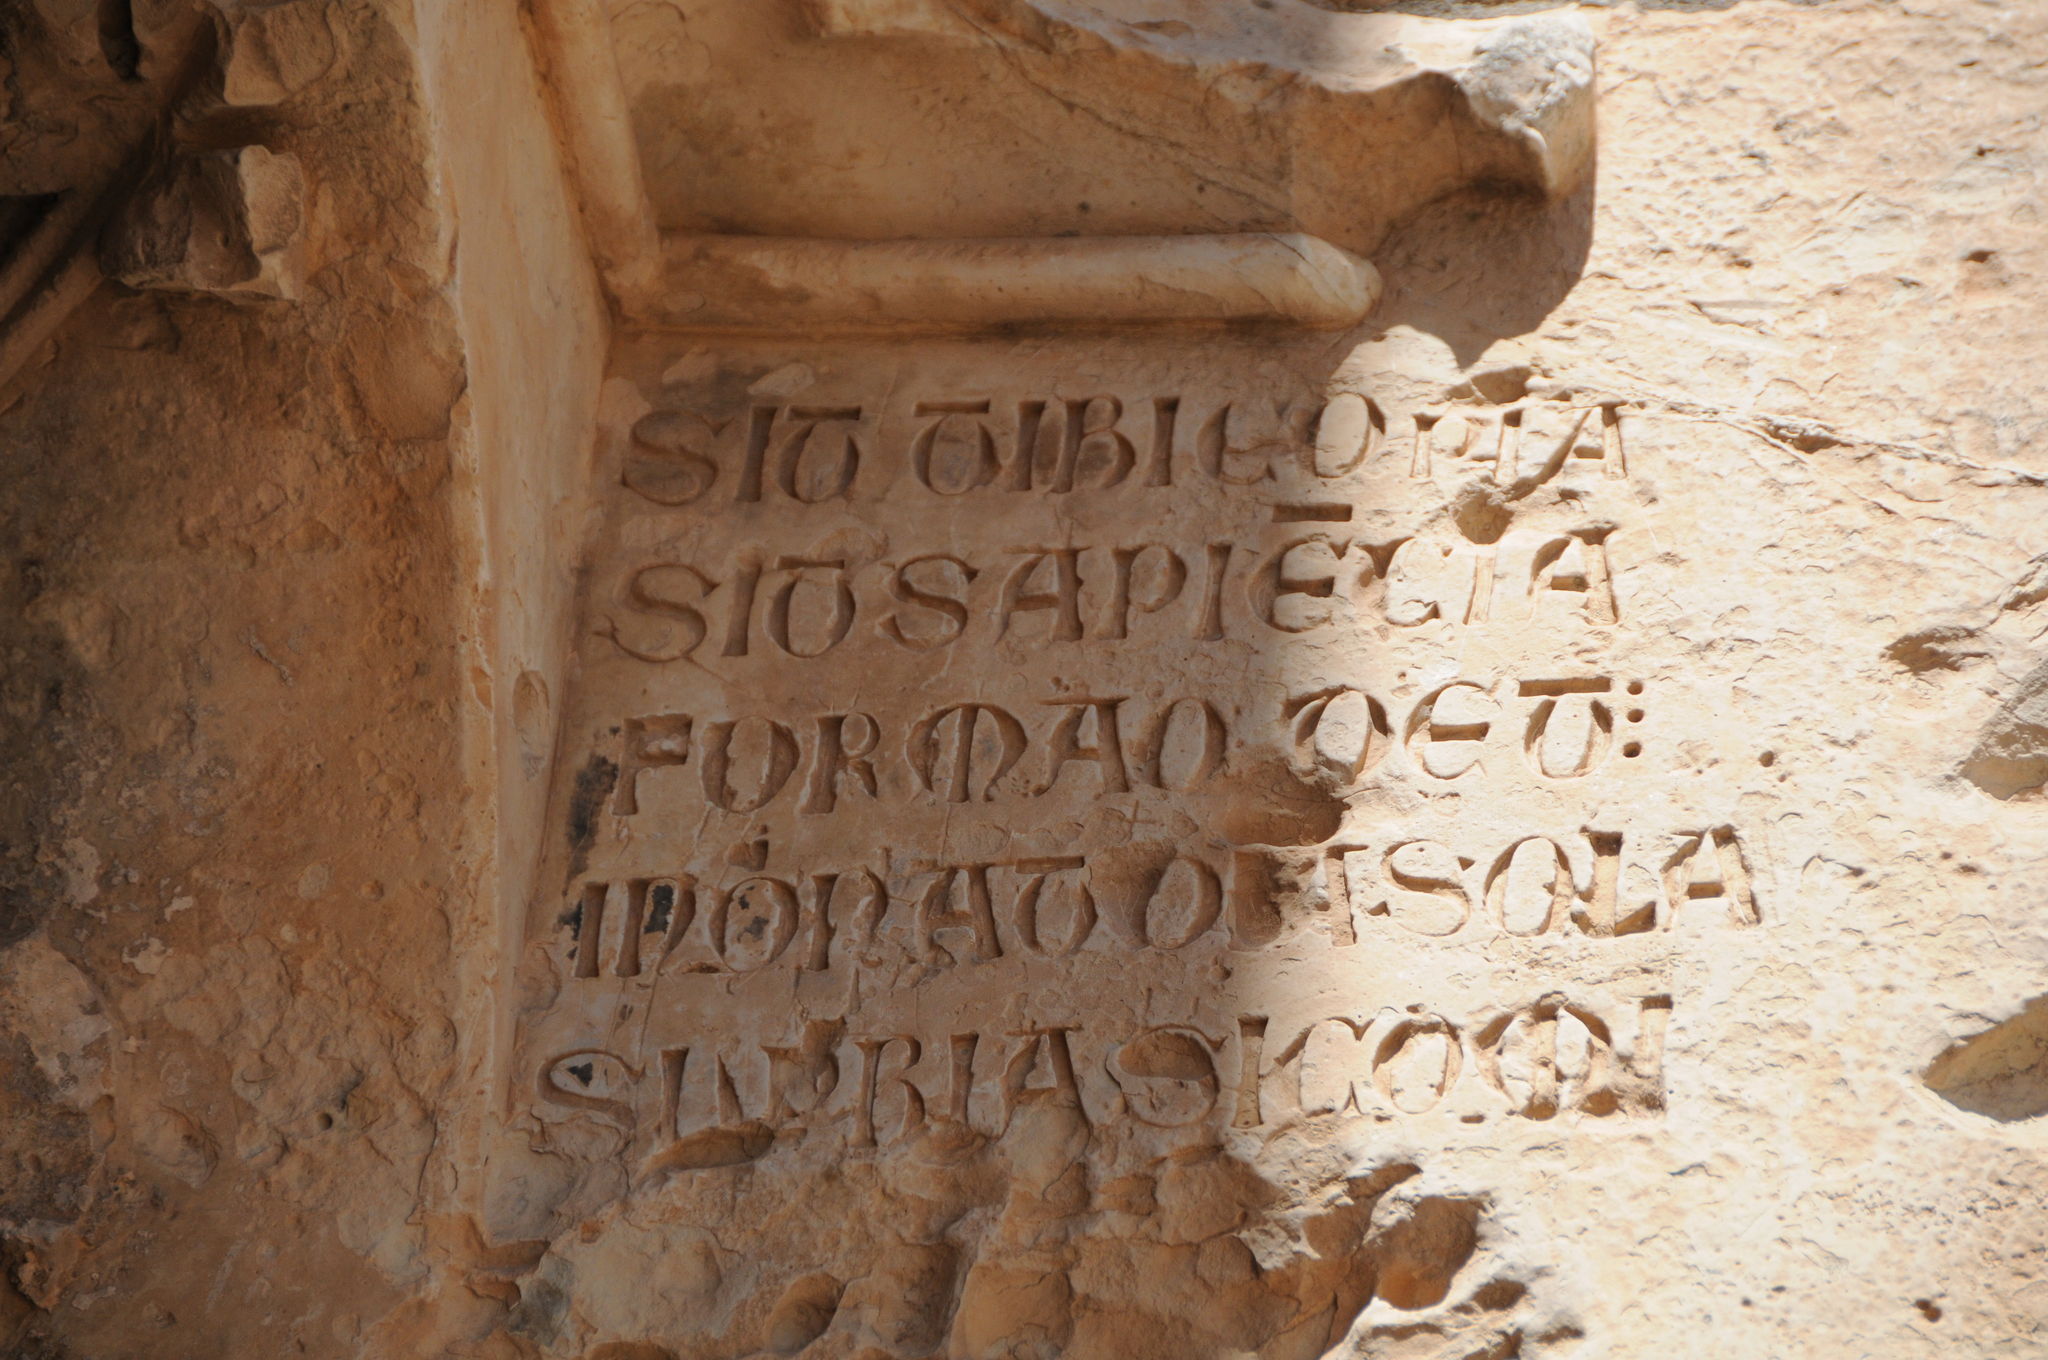 SIT TIBI COPIA
SIT SAPIĒCIA
FORMAQ DET⁝
INQⁱNAT OIA SOLA
SUPBIA SI COMI